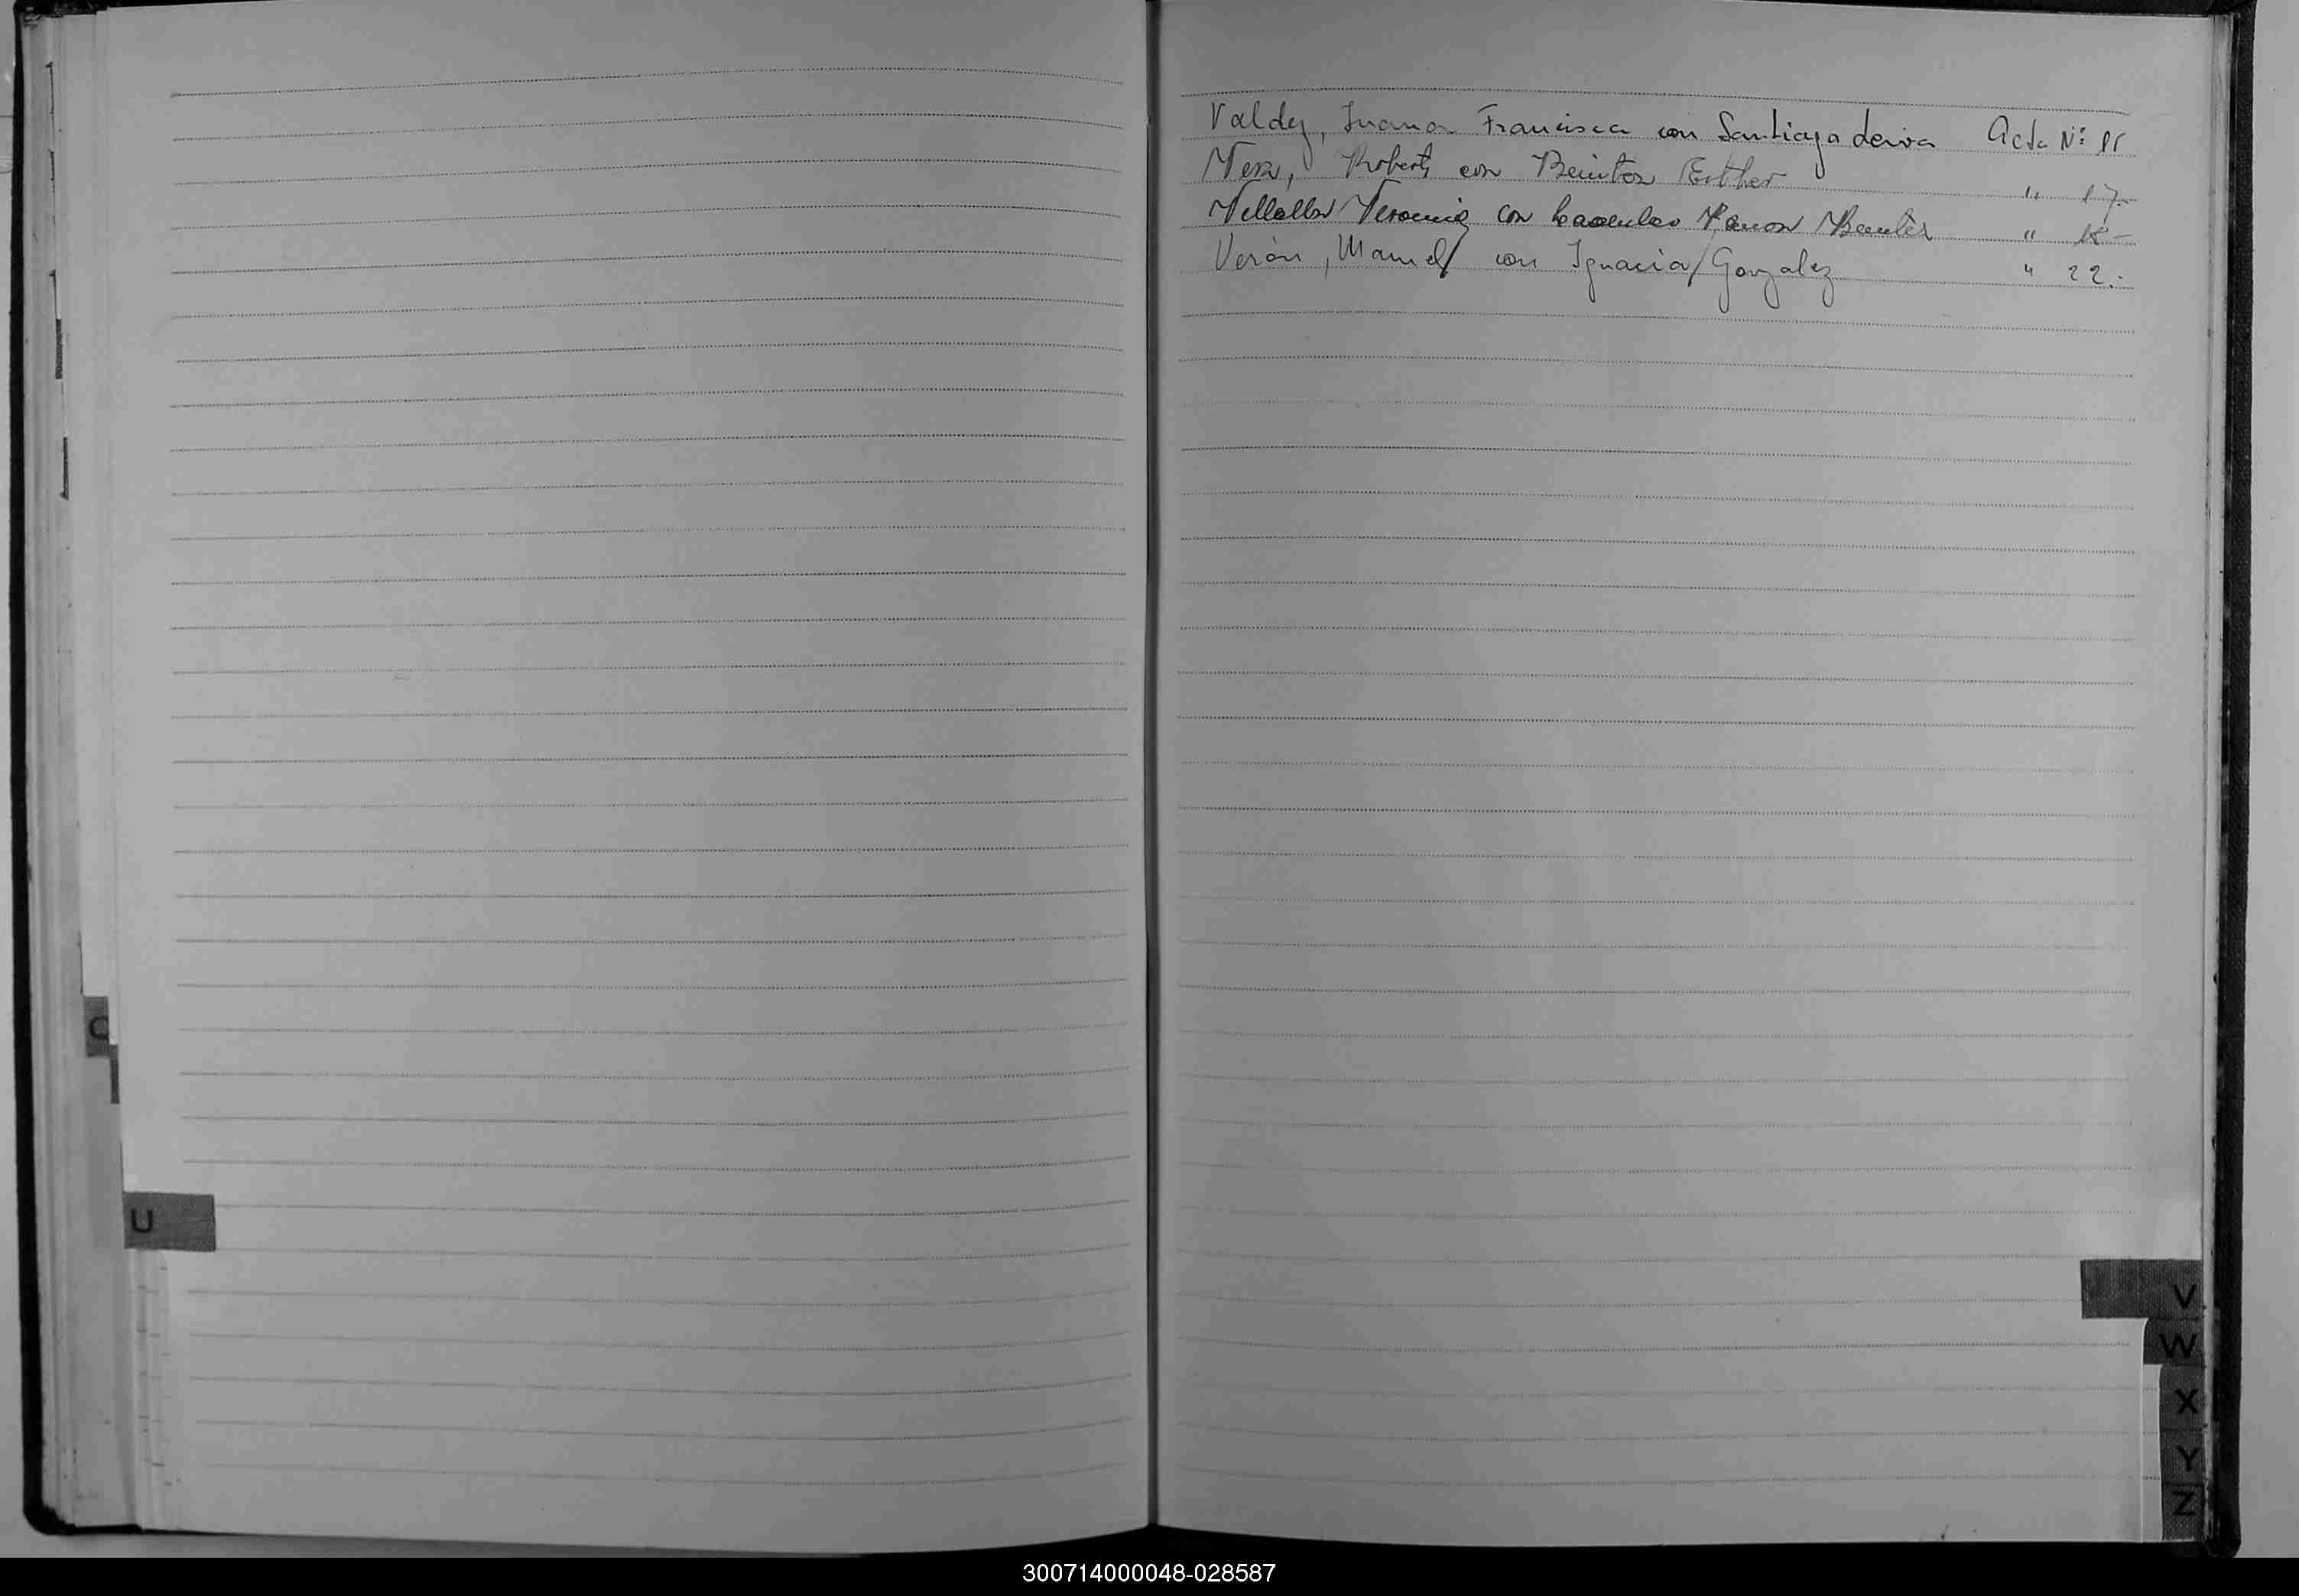 Valdez, Juana Francisca con Santiago Leiva Acta Nº 11
Vera, Roberto con Benitez Esther " 17.-
Villalba Veronica con Ramon Benitez " 18-
Verón, Manuel con Ignacia Gonzalez " 22.-
U
V
W
X
Y
Z
300714000048-028587